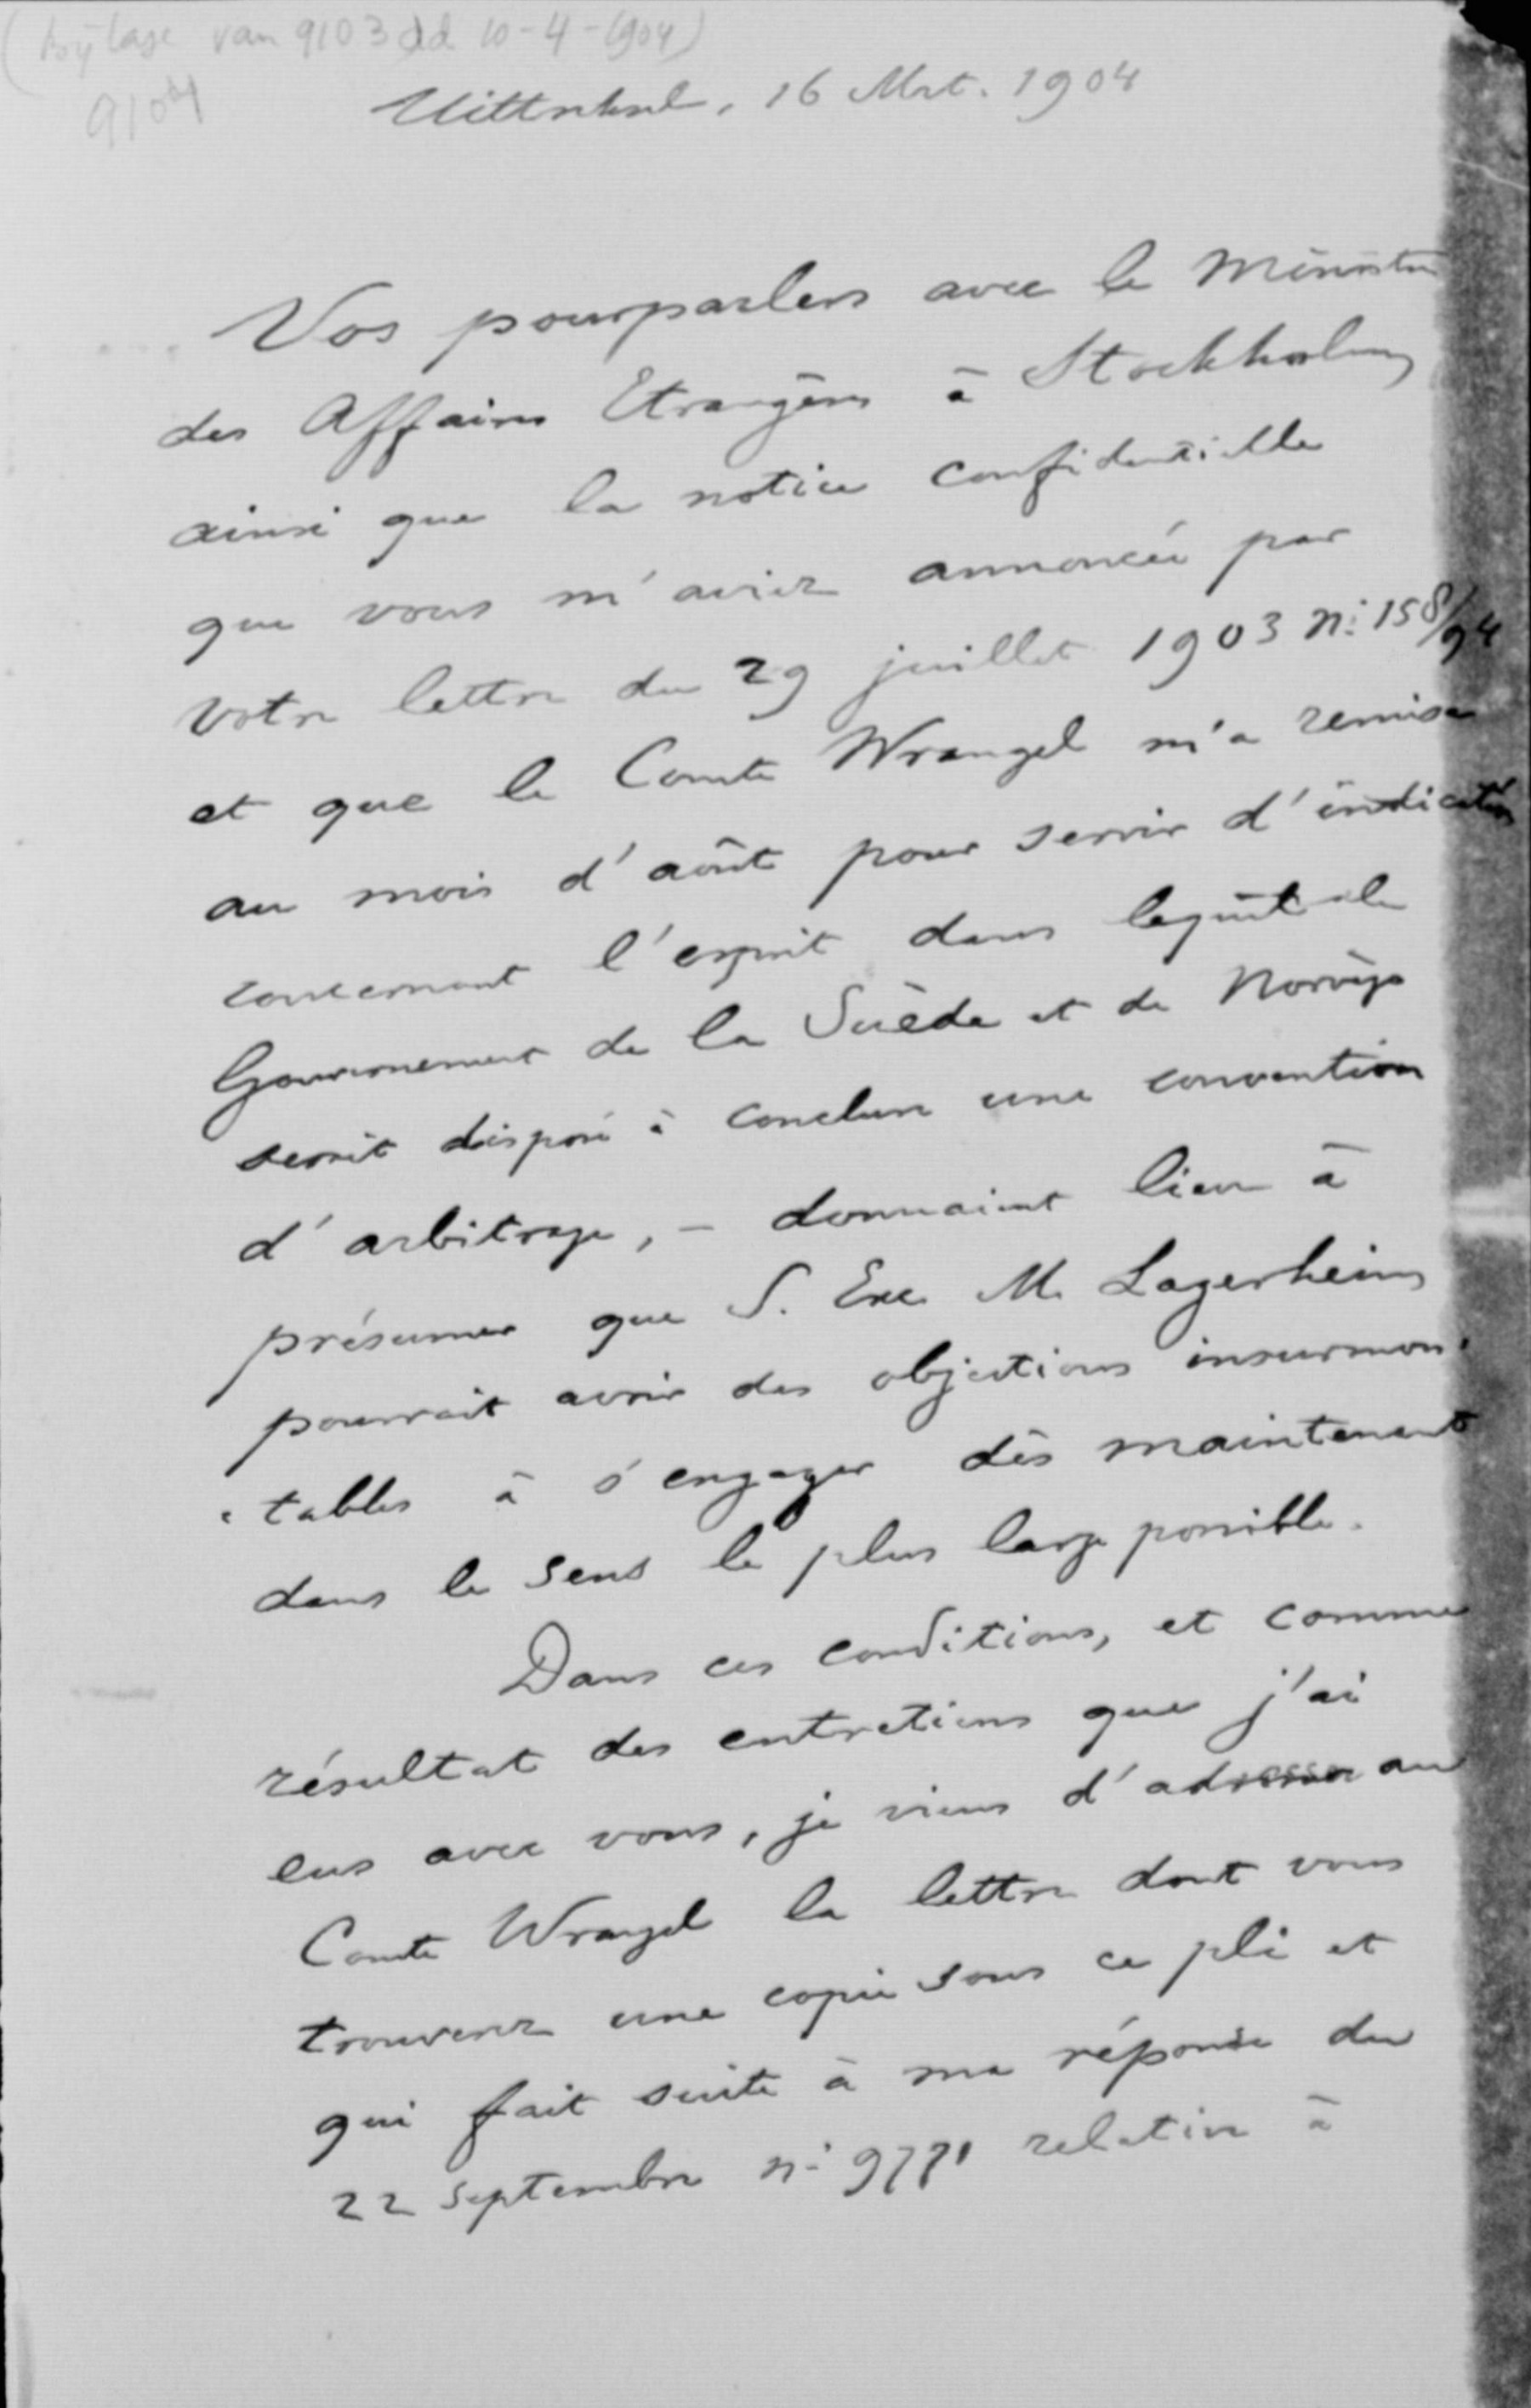 (bijlage van 9103 dd 10-4-1904)
9104
Uittreksel, 16 Mrt. 1904
Vos pourparlers avec le Ministre
des Affaires Etrangères à Stockholm
ainsi que la notice confidentielle
que vous m'aviez annoncée par
votre lettre du 29 juillet 1903 n: 158/94
et que le Comte Wrangel m'a remise
au mois d'août pour servir d'indication
concernant l'esprit dans lequel le
Gouvernement de la Suède et de Norvège
serait disposé à conclure une convention
d'arbitrage, – donnaient lieu à
présumer que S. Exc M. Lagerheim
pourrait avoir des objections insurmon-
-tables à s'engager dès maintenant
dans le sens le plus large possible.
Dans ces conditions, et comme
résultat des entretiens que j'ai
eus avec vous, je viens d'adresser au
Comte Wrangel la lettre dont vous
trouverez une copie sous ce pli et
qui fait suite à ma réponse du
22 septembre n: relative à